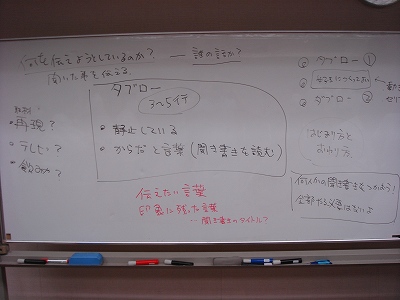 何を伝えようとしているのか? ― 誰の話か?
聞いた事を伝える
タブロー
3~5行
• 静止している
• からだと言葉(聞き書きを読む)
• 再現?
• テレビ?
伝えたい言葉
印象に残った言葉
…聞き書きのタイトル?
◎ タブロー ①
◎ タブロー ②
はじまり方と
おわり方
何人かの聞き書きをつかおう!
全部やる必要はないよ